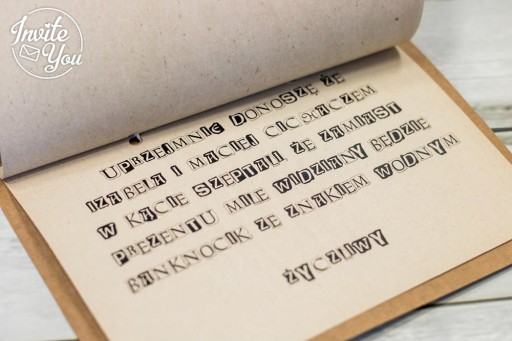 Invite
You
UPRZEJMNIE DONOSZĘ ŻE
IZABELA I MACIEJ CICHACZEM
W KĄCIE SZEPTALI ŻE ZAMIAST
PREZENTU MILE WIDZIANY BĘDZIE
BANKNOCIK ZE ZNAKIEM WODNYM
ŻYCZLIWY